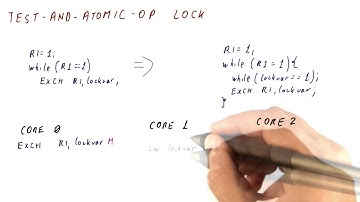 TEST-AND-ATOMIC-OP LOCK
R1=1;
while (R1==1)
EXCH R1, lockvar;
=>
R1=1;
while (R1==1){
while (lockvar==1);
EXCH R1, lockvar;
}
CORE 0
CORE 1
CORE 2
EXCH R1, lockvar M
lockvar